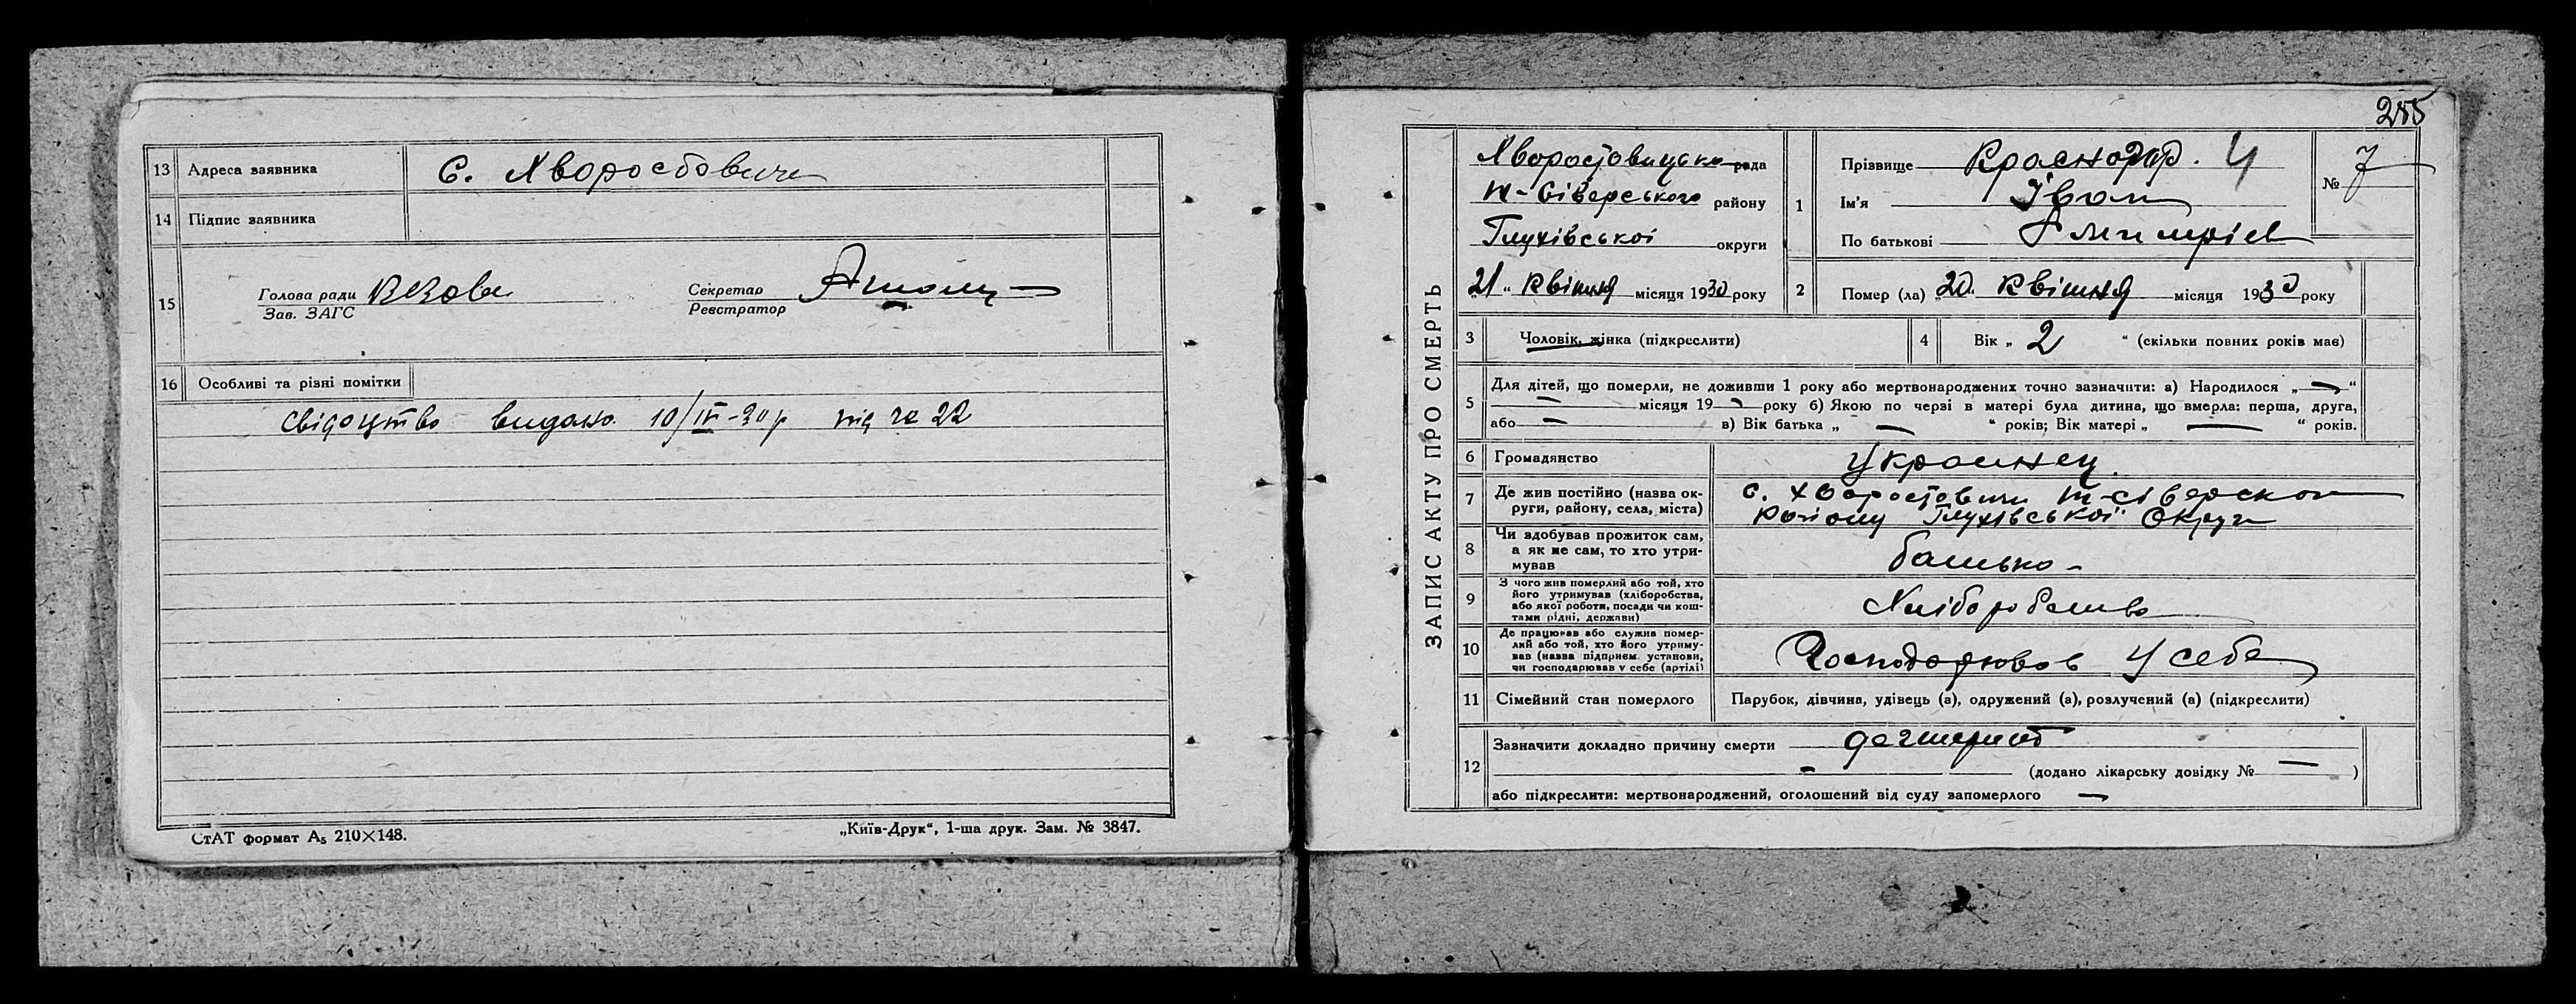 13 Адреса заявника с. Хворостовичи
14 Підпис заявника
15 Голова ради
Зав. ЗАГС
Секретар
Реєстратор
16 Особливі та різні помітки
свідоцтво видано 10/IV-30 р під № 22
СтАТ формат А₅ 210×148.
„Київ-Друк“, 1-ша друк. Зам. № 3847.
285
ЗАПИС АКТУ ПРО СМЕРТЬ
Хворостовицька рада
Н-Сіверського району
Глухівської округи
„21„ квітня місяця 1930 року
1 Прізвище
Ім'я Іван
По батькові
№ 7
2 Помер (ла) „20„ квітня місяця 1930 року
3 Чоловік, жінка (підкреслити)
4 Вік „ 2 “ (скільки повних років має)
5 Для дітей, що померли, не доживши 1 року або мертвонароджених точно зазначити: а) Народилося „—“
— місяця 19 — року б) Якою по черзі в матері була дитина, що вмерла: перша, друга,
або — в) Вік батька „ — “ років; Вік матері „ — “ років.
6 Громадянство Украинец
7 Де жив постійно (назва округи, району, села, міста) с. Хворостовичи Н-Сіверског
району Глухівської Округи
8 Чи здобував прожиток сам, а як не сам, то хто утримував батько -
9 З чого жив померлий або той, хто його утримував (хліборобства, або якої роботи, посади чи коштами рідні, держави) Хліборобства
10 Де працював або служив померлий або той, хто його утримував (назва підприєм. установи, чи господарював у себе (артілі) Господарював У себе
11 Сімейний стан померлого Парубок, дівчина, удівець (а), одружений (а), розлучений (а) (підкреслити)
12 Зазначити докладно причину смерти
— (додано лікарську довідку № — )
або підкреслити: мертвонароджений, оголошений від суду запомерлого —